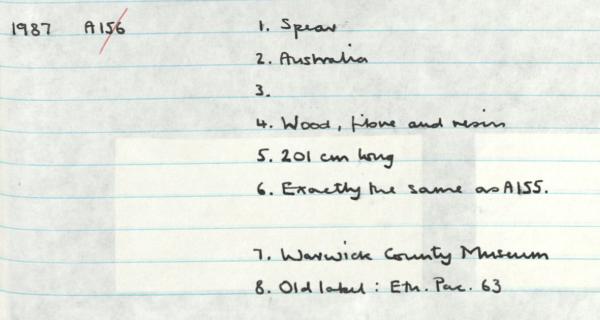 1987 A156 1. Spear
2. Australia
3.
4. Wood, fibre and resin
5. 201 cm long
6. Exactly the same as A155.
7. Warwick County Museum
8. Old label: Eth. Pac. 63